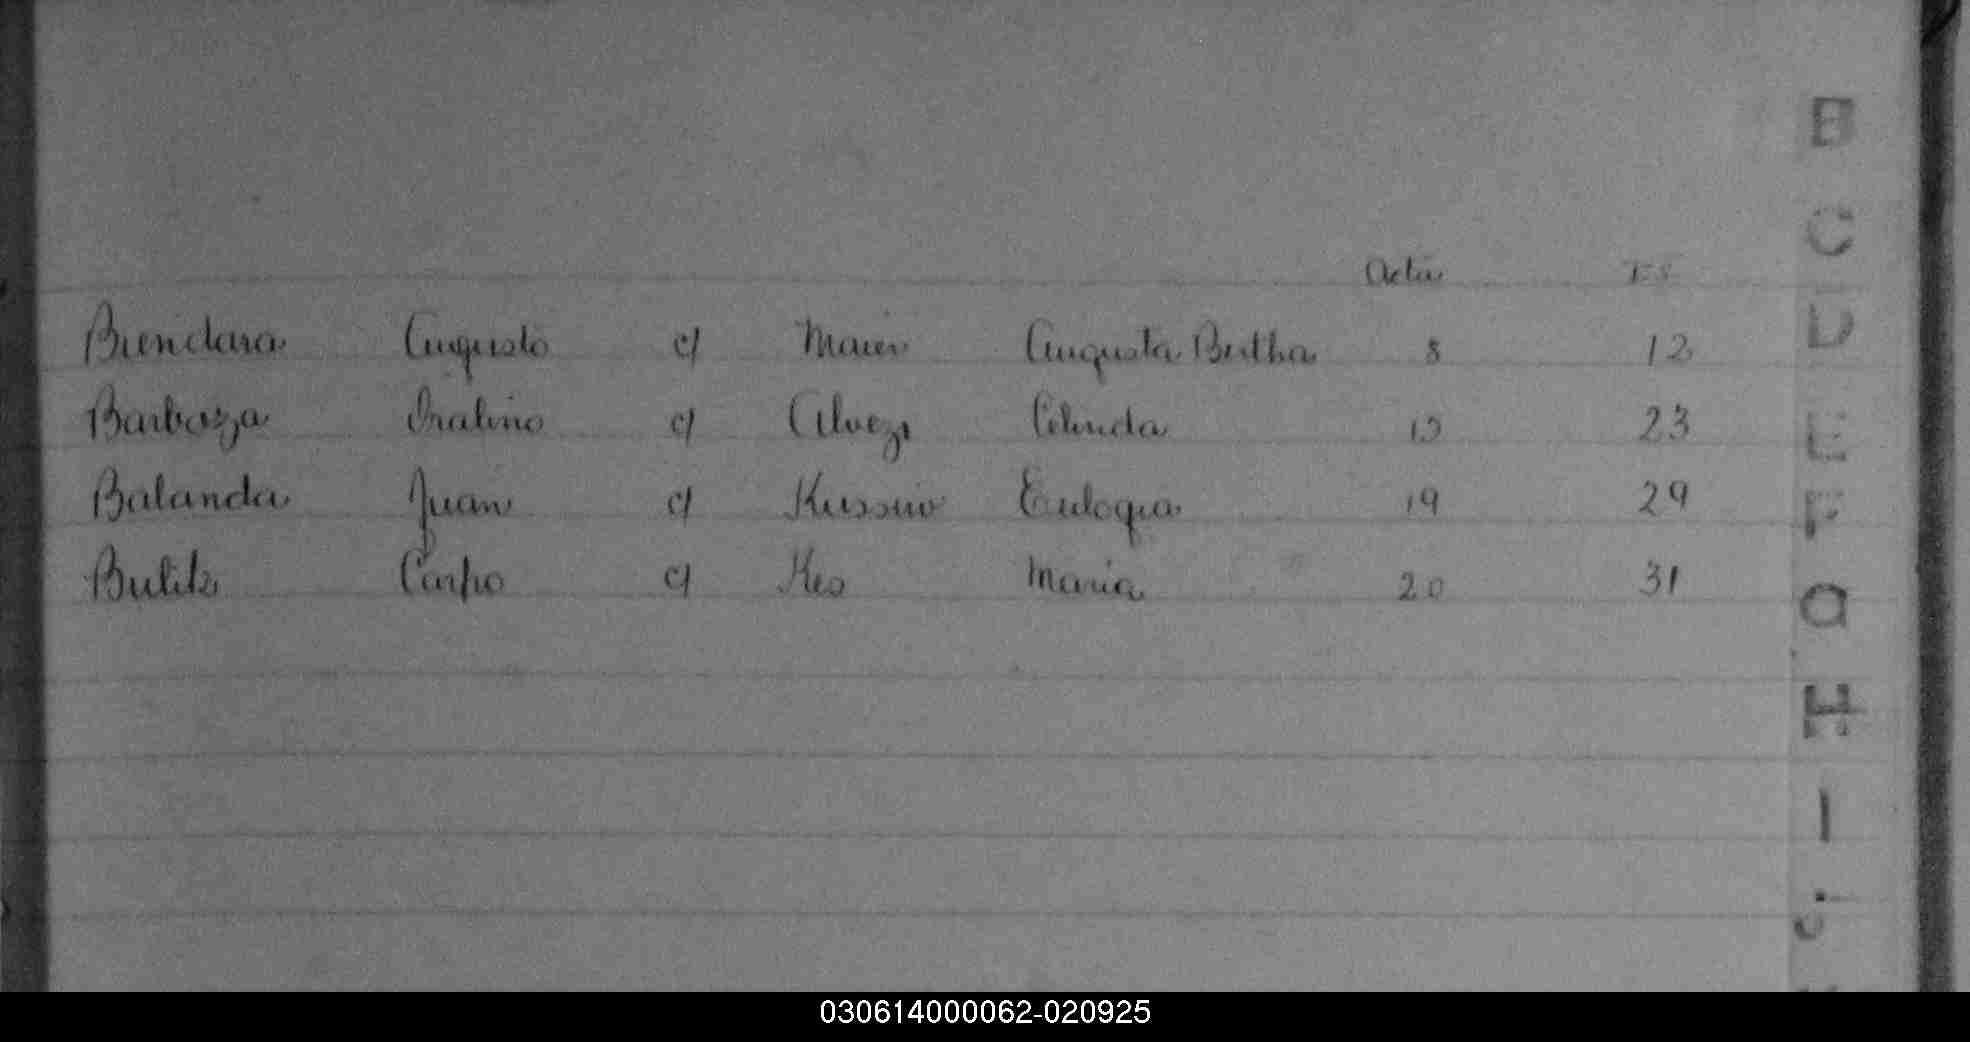 B
C
Acta Fs
D
Biendara Augusto c/ Maier Augusta Bertha 8 12
Barboza Oralino c/ Alvez Celinda 13 23
E
Balanda Juan c/ Eulogia 19 29
F
Bulik Carpo c/ Maria 20 31
G
H
I
J
030614000062-020925